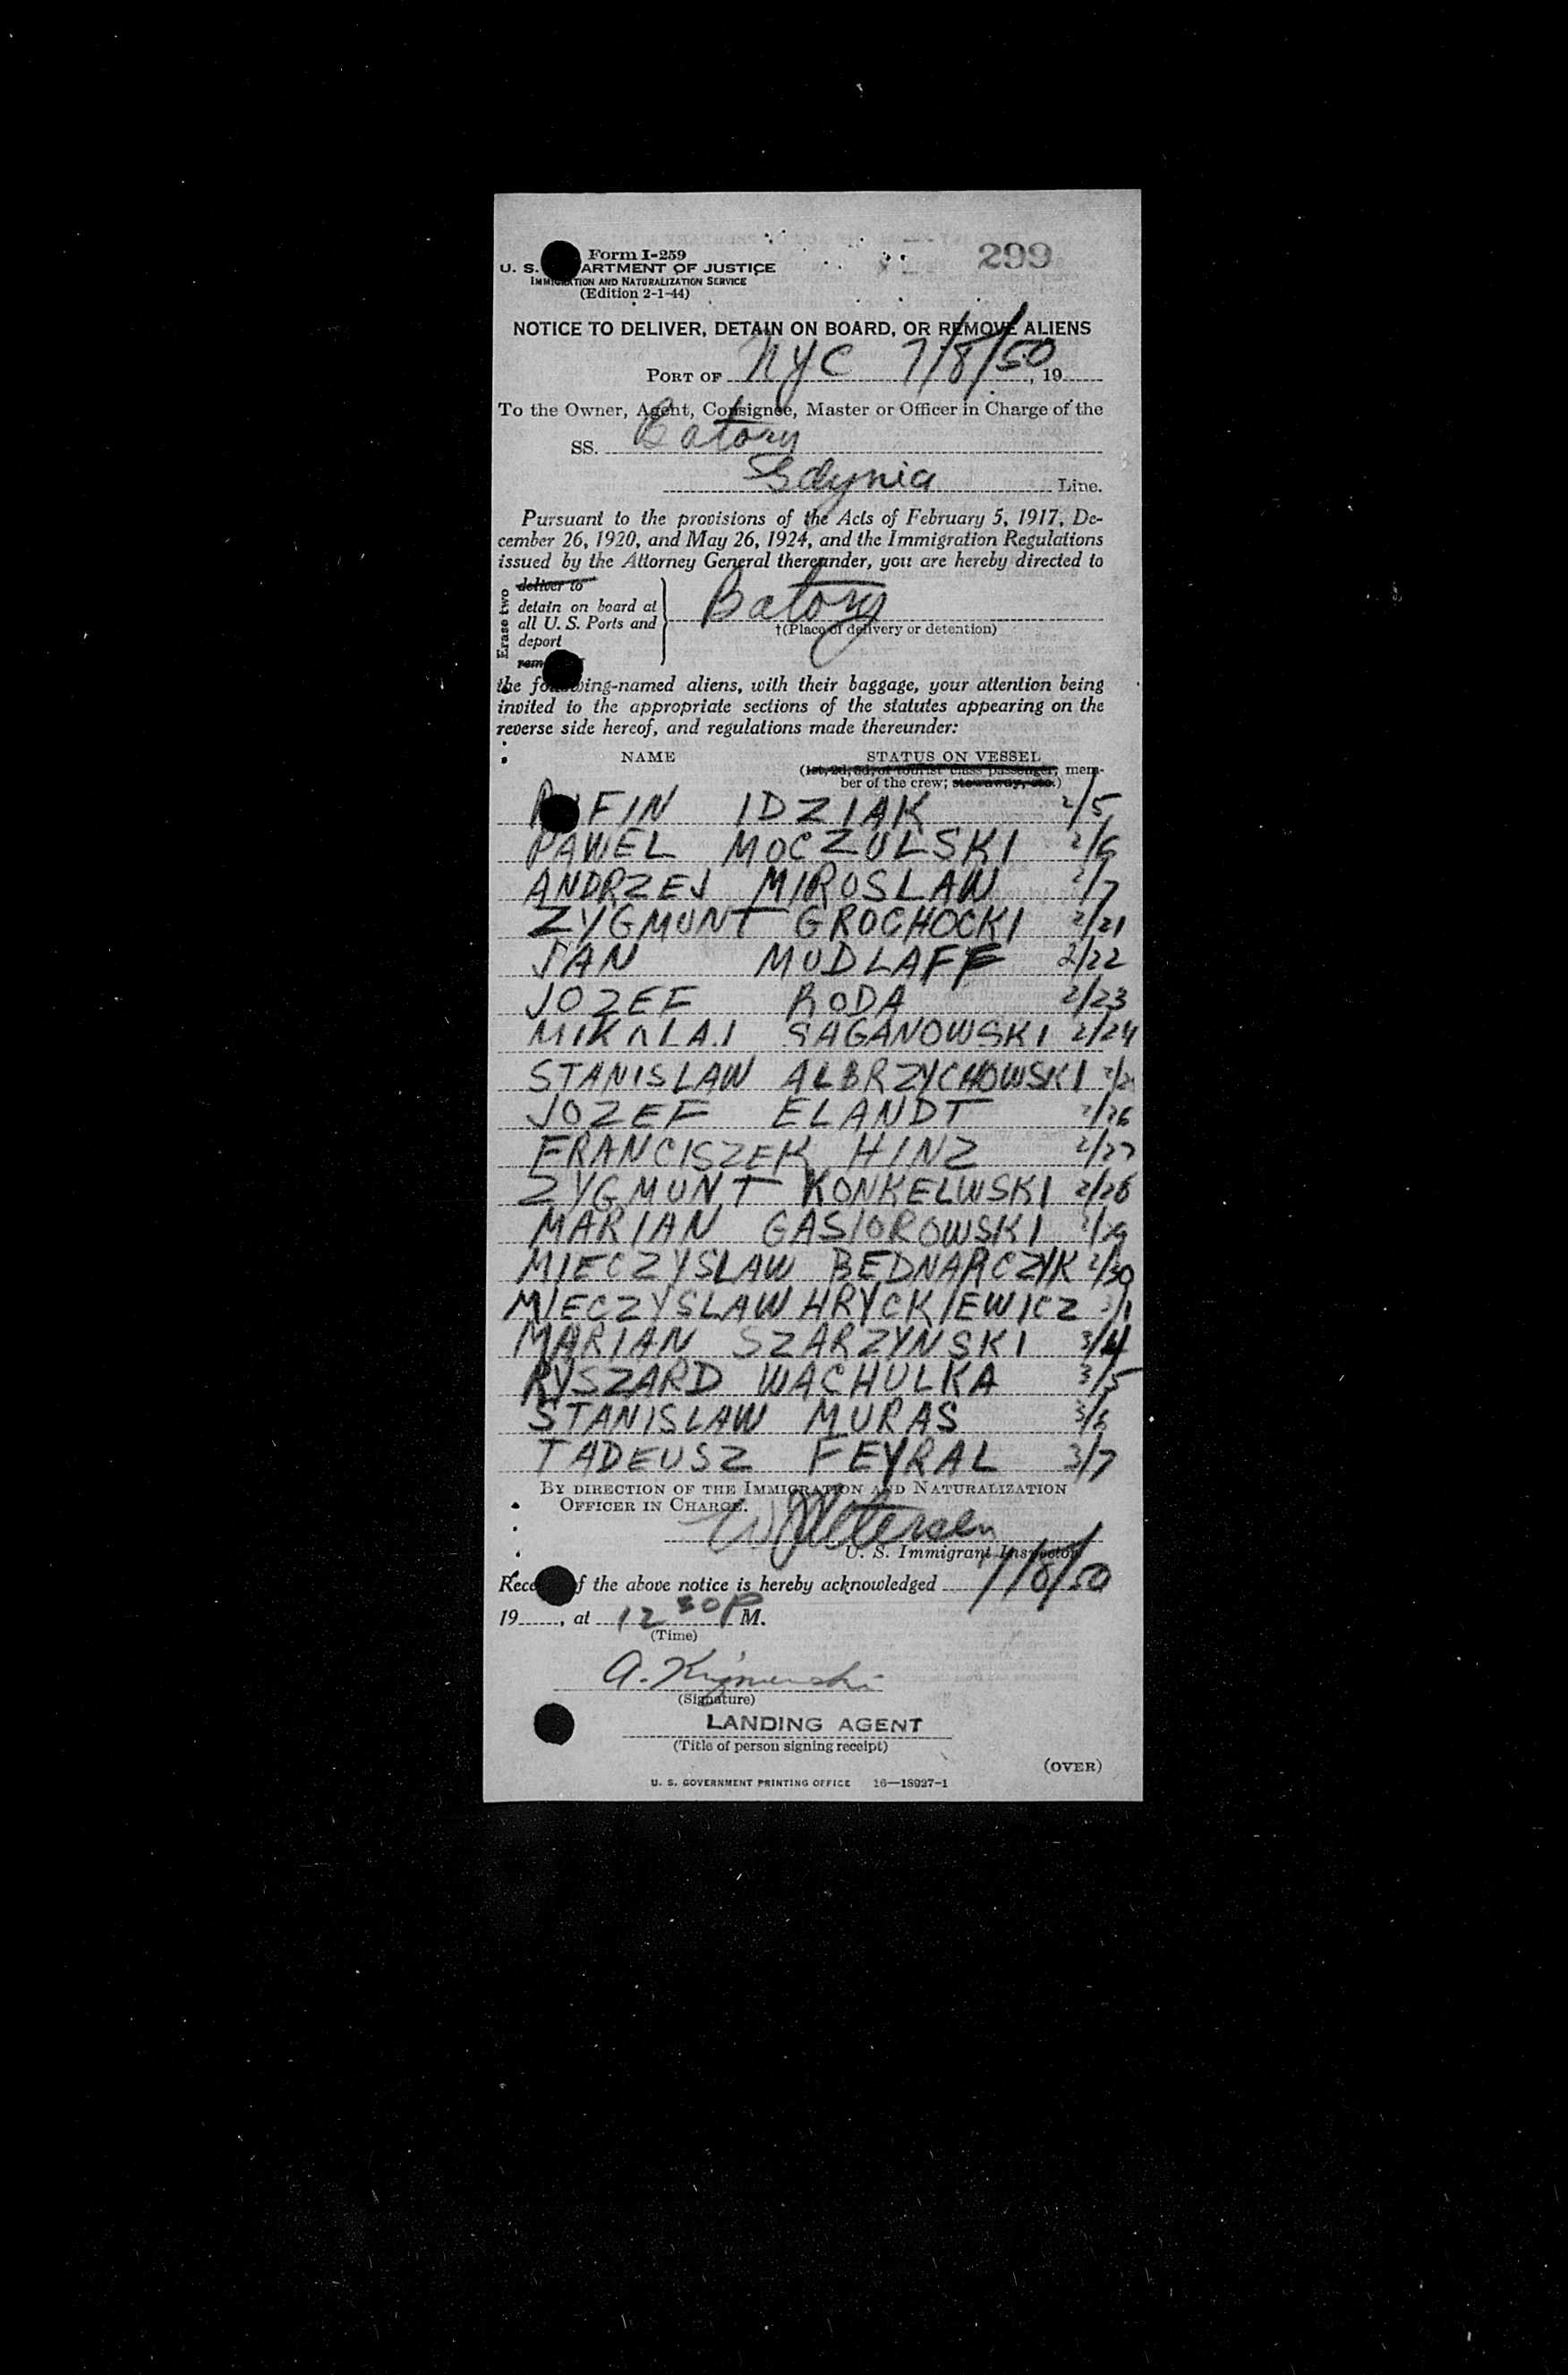 Form I-259
299
U. S. DEPARTMENT OF JUSTICE
IMMIGRATION AND NATURALIZATION SERVICE
(Edition 2-1-44)
NOTICE TO DELIVER, DETAIN ON BOARD, OR REMOVE ALIENS
PORT OF NYC 7/8/50, 19
To the Owner, Agent, Consignee, Master or Officer in Charge of the
SS. Batory
Gdynia Line.
Pursuant to the provisions of the Acts of February 5, 1917, De-
cember 26, 1920, and May 26, 1924, and the Immigration Regulations
issued by the Attorney General thereunder, you are hereby directed to
Erase two
deliver to
detain on board at
all U. S. Ports and
deport
Batory
†(Place of delivery or detention)
the following-named aliens, with their baggage, your attention being
invited to the appropriate sections of the statutes appearing on the
reverse side hereof, and regulations made thereunder:
NAME STATUS ON VESSEL
(1st, 2d, 3d, or tourist class passenger; mem-
ber of the crew; stowaway, etc.)
FIN IDZIAK 2/5
PAWEL MOCZULSKI 2/6
ANDRZEJ MIROSLAW 2/7
ZYGMUNT GROCHOCKI 2/21
JAN MUDLAFF 2/22
JOZEF RODA 2/23
MIKOLAJ SAGANOWSKI 2/24
STANISLAW ALBRZYCHOWSKI
JOZEF ELANDT 2/26
FRANCISZEK HINZ 2/27
ZYGMUNT KONKELWSKI 2/28
MARIAN GASIOROWSKI 2/29
MIECZYSLAW BEDNARCZYK 2/30
MIECZYSLAW HRYCKIEWICZ 3/1
MARIAN SZARZYNSKI 3/4
RYSZARD WACHULKA 3/5
STANISLAW MURAS 3/6
TADEUSZ FEYRAL 3/7
BY DIRECTION OF THE IMMIGRATION AND NATURALIZATION
OFFICER IN CHARGE.
Petersen
U. S. Immigrant Inspector
Receipt of the above notice is hereby acknowledged 7/8/50
19, at 12 30 P M.
(Time)
A.
(Signature)
LANDING AGENT
(Title of person signing receipt)
(OVER)
U. S. GOVERNMENT PRINTING OFFICE 16—18927-1